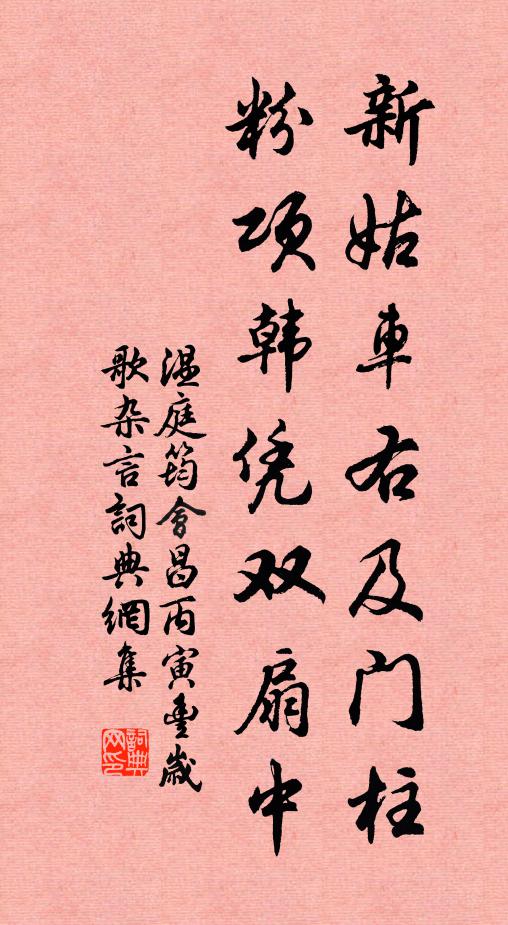 新姑车右及门柱
粉项韩凭双扇中
温庭筠会昌丙寅豊歲
歌杂言詞典網集
詞典
网印